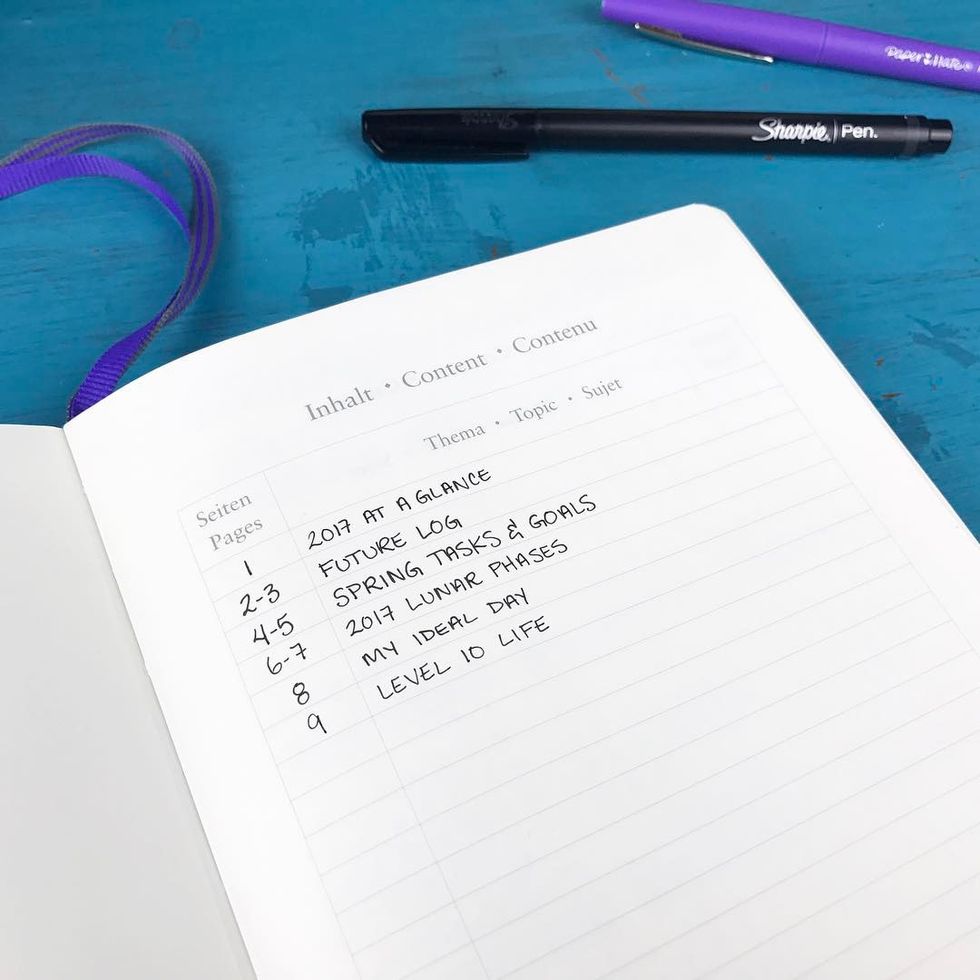 Paper Mate®
Sharpie. Pen.
Inhalt • Content • Contenu
Thema • Topic • Sujet
Seiten
Pages
1 2017 AT A GLANCE
2-3 FUTURE LOG
4-5 SPRING TASKS & GOALS
6-7 2017 LUNAR PHASES
8 MY IDEAL DAY
9 LEVEL 10 LIFE